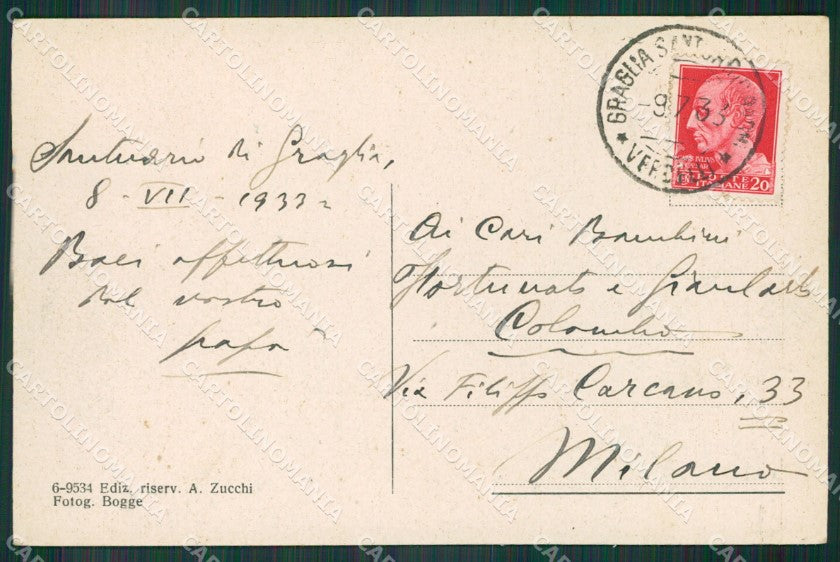 Santuario di Graglia,
8 - VII - 1933 =
Baci affettuosi
dal vostro
papà
6-9534 Ediz. riserv. A. Zucchi
Fotog. Bogge
GRAGLIA
-9.7.33
* VERCELLI *
POSTE
ITALIANE 20
Ai Cari Bambini
Fortunato e Giancarlo
Colombo
Via Filippo Carcano, 33
Milano
CARTOLINOMANIA